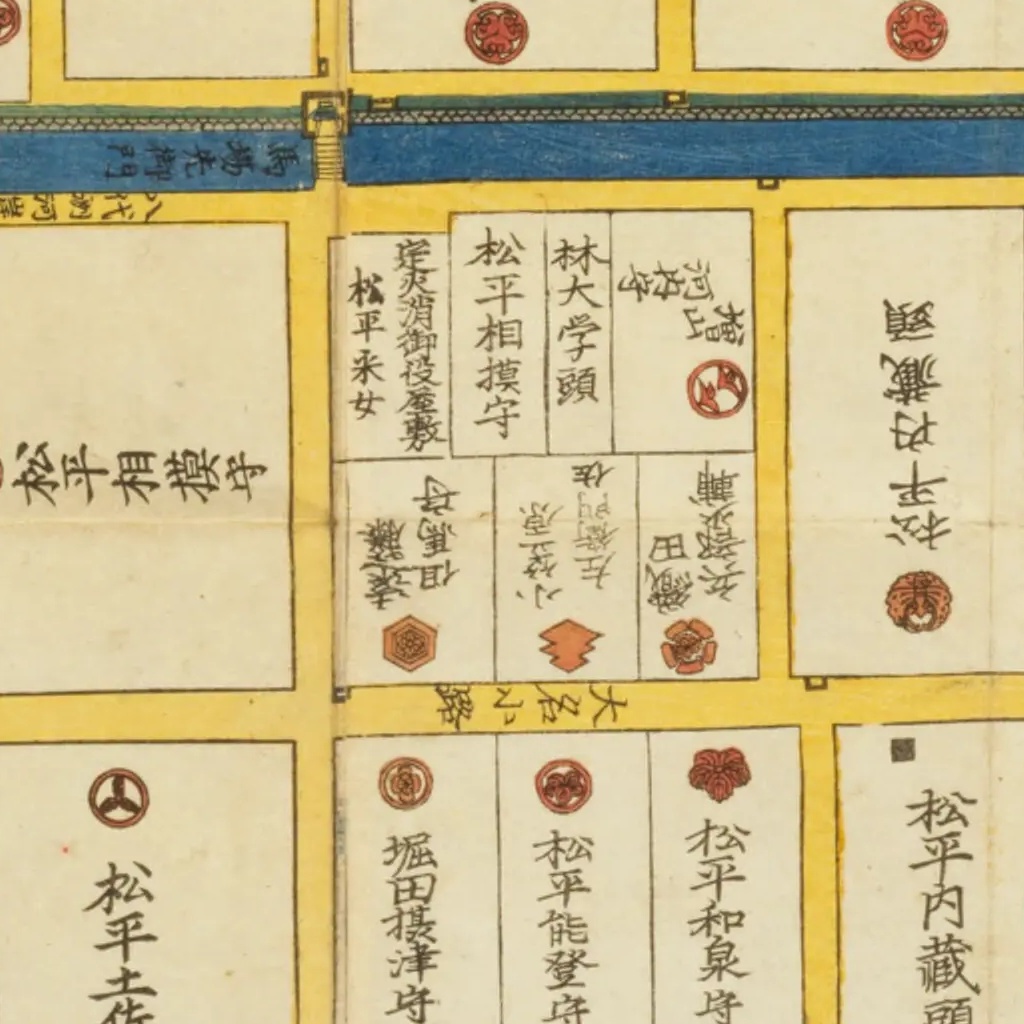 馬場先御門
八代洲河岸
定火消御役屋敷
松平采女
松平相摸守
林大学頭
増山
河内守
松平内蔵頭
松平相摸守
遠藤
但馬守
小笠原
左衛門佐
織田
兵部少輔
大名小路
松平土佐
堀田摂津守
松平能登守
松平和泉守
松平内蔵頭